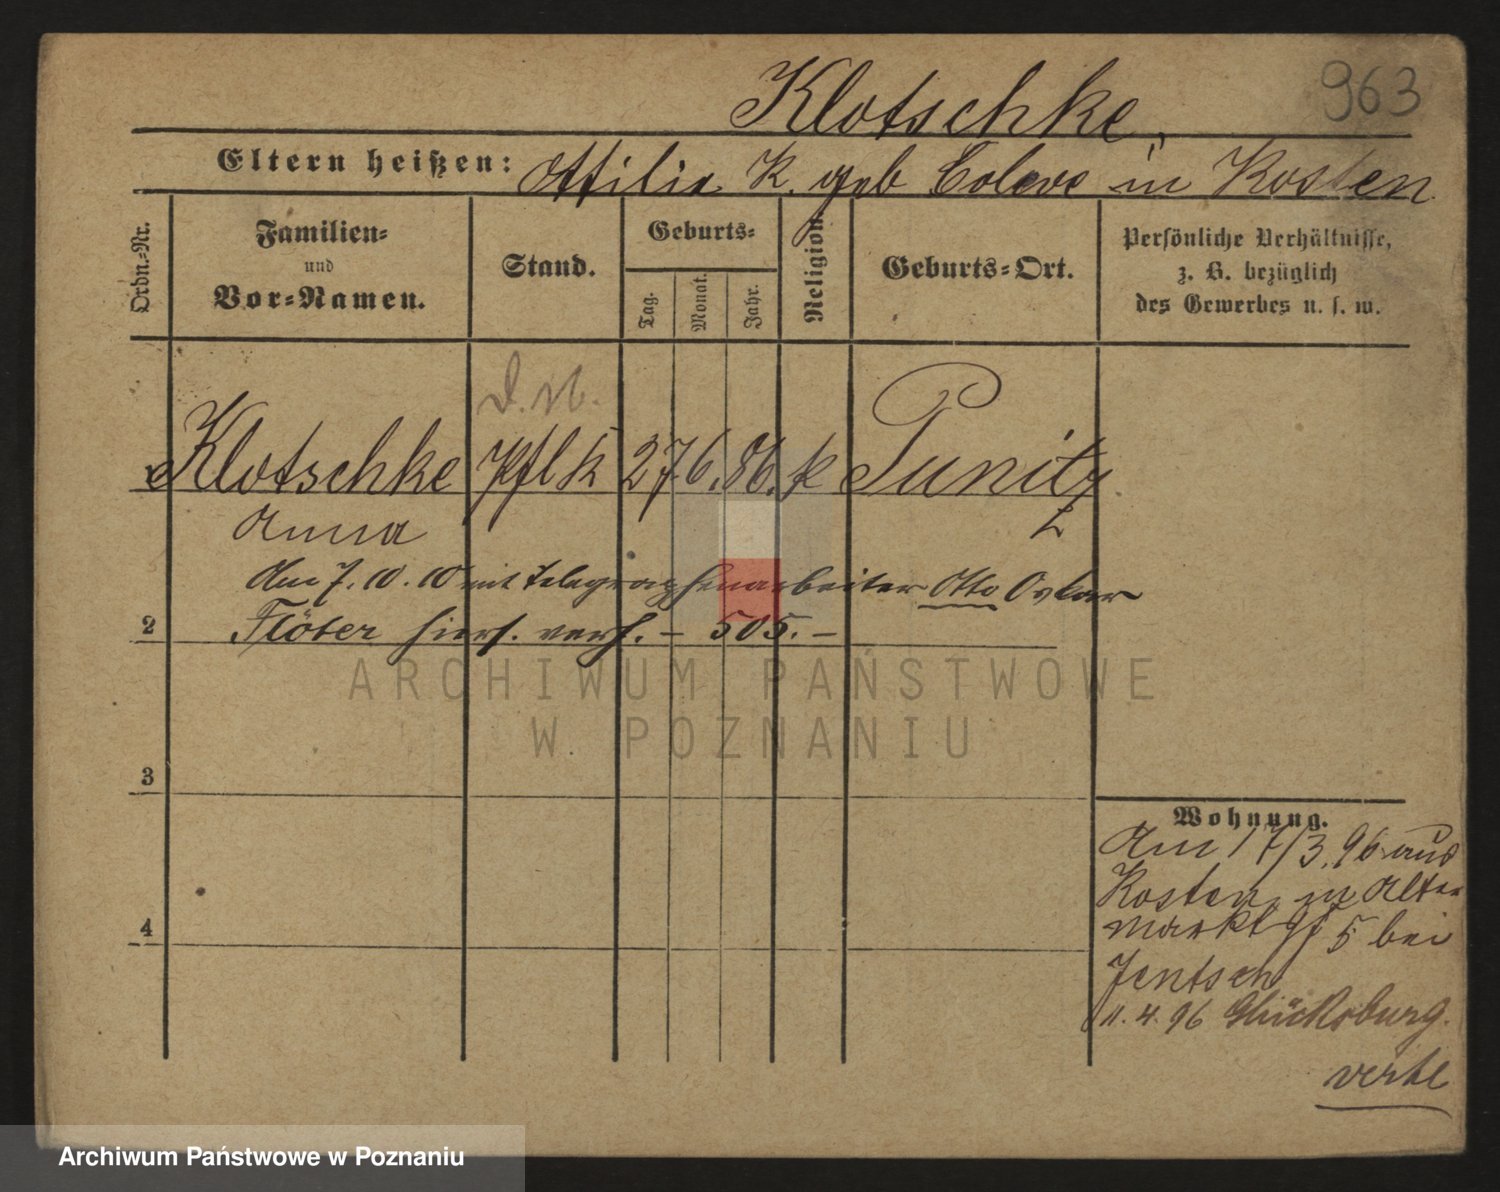 963
Klotschke,
Eltern heißen: Ottilie K. geb in Kosten
Ordn.-Nr.
Familien-
und
Vor-Namen.
Stand.
Geburts-
Tag.
Monat.
Jahr.
Religion.
Geburts-Ort.
Persönliche Verhältnisse,
z. B. bezüglich
des Gewerbes u. s. w.
D. M.
Klotschke Pflk 27 6. 86. k Punitz
Anna
Am 7. 10. 10 mit Telegraphenarbeiter Otto Oskar
2 Flöter hiers. verh. – 505. –
ARCHIWUM PAŃSTWOWE
W POZNANIU
3
4
Wohnung.
Am 17/3. 96 aus
Kosten, Alter
markt 5 bei
Jentsch
11. 4. 96 Glücksburg.
verte
Archiwum Państwowe w Poznaniu